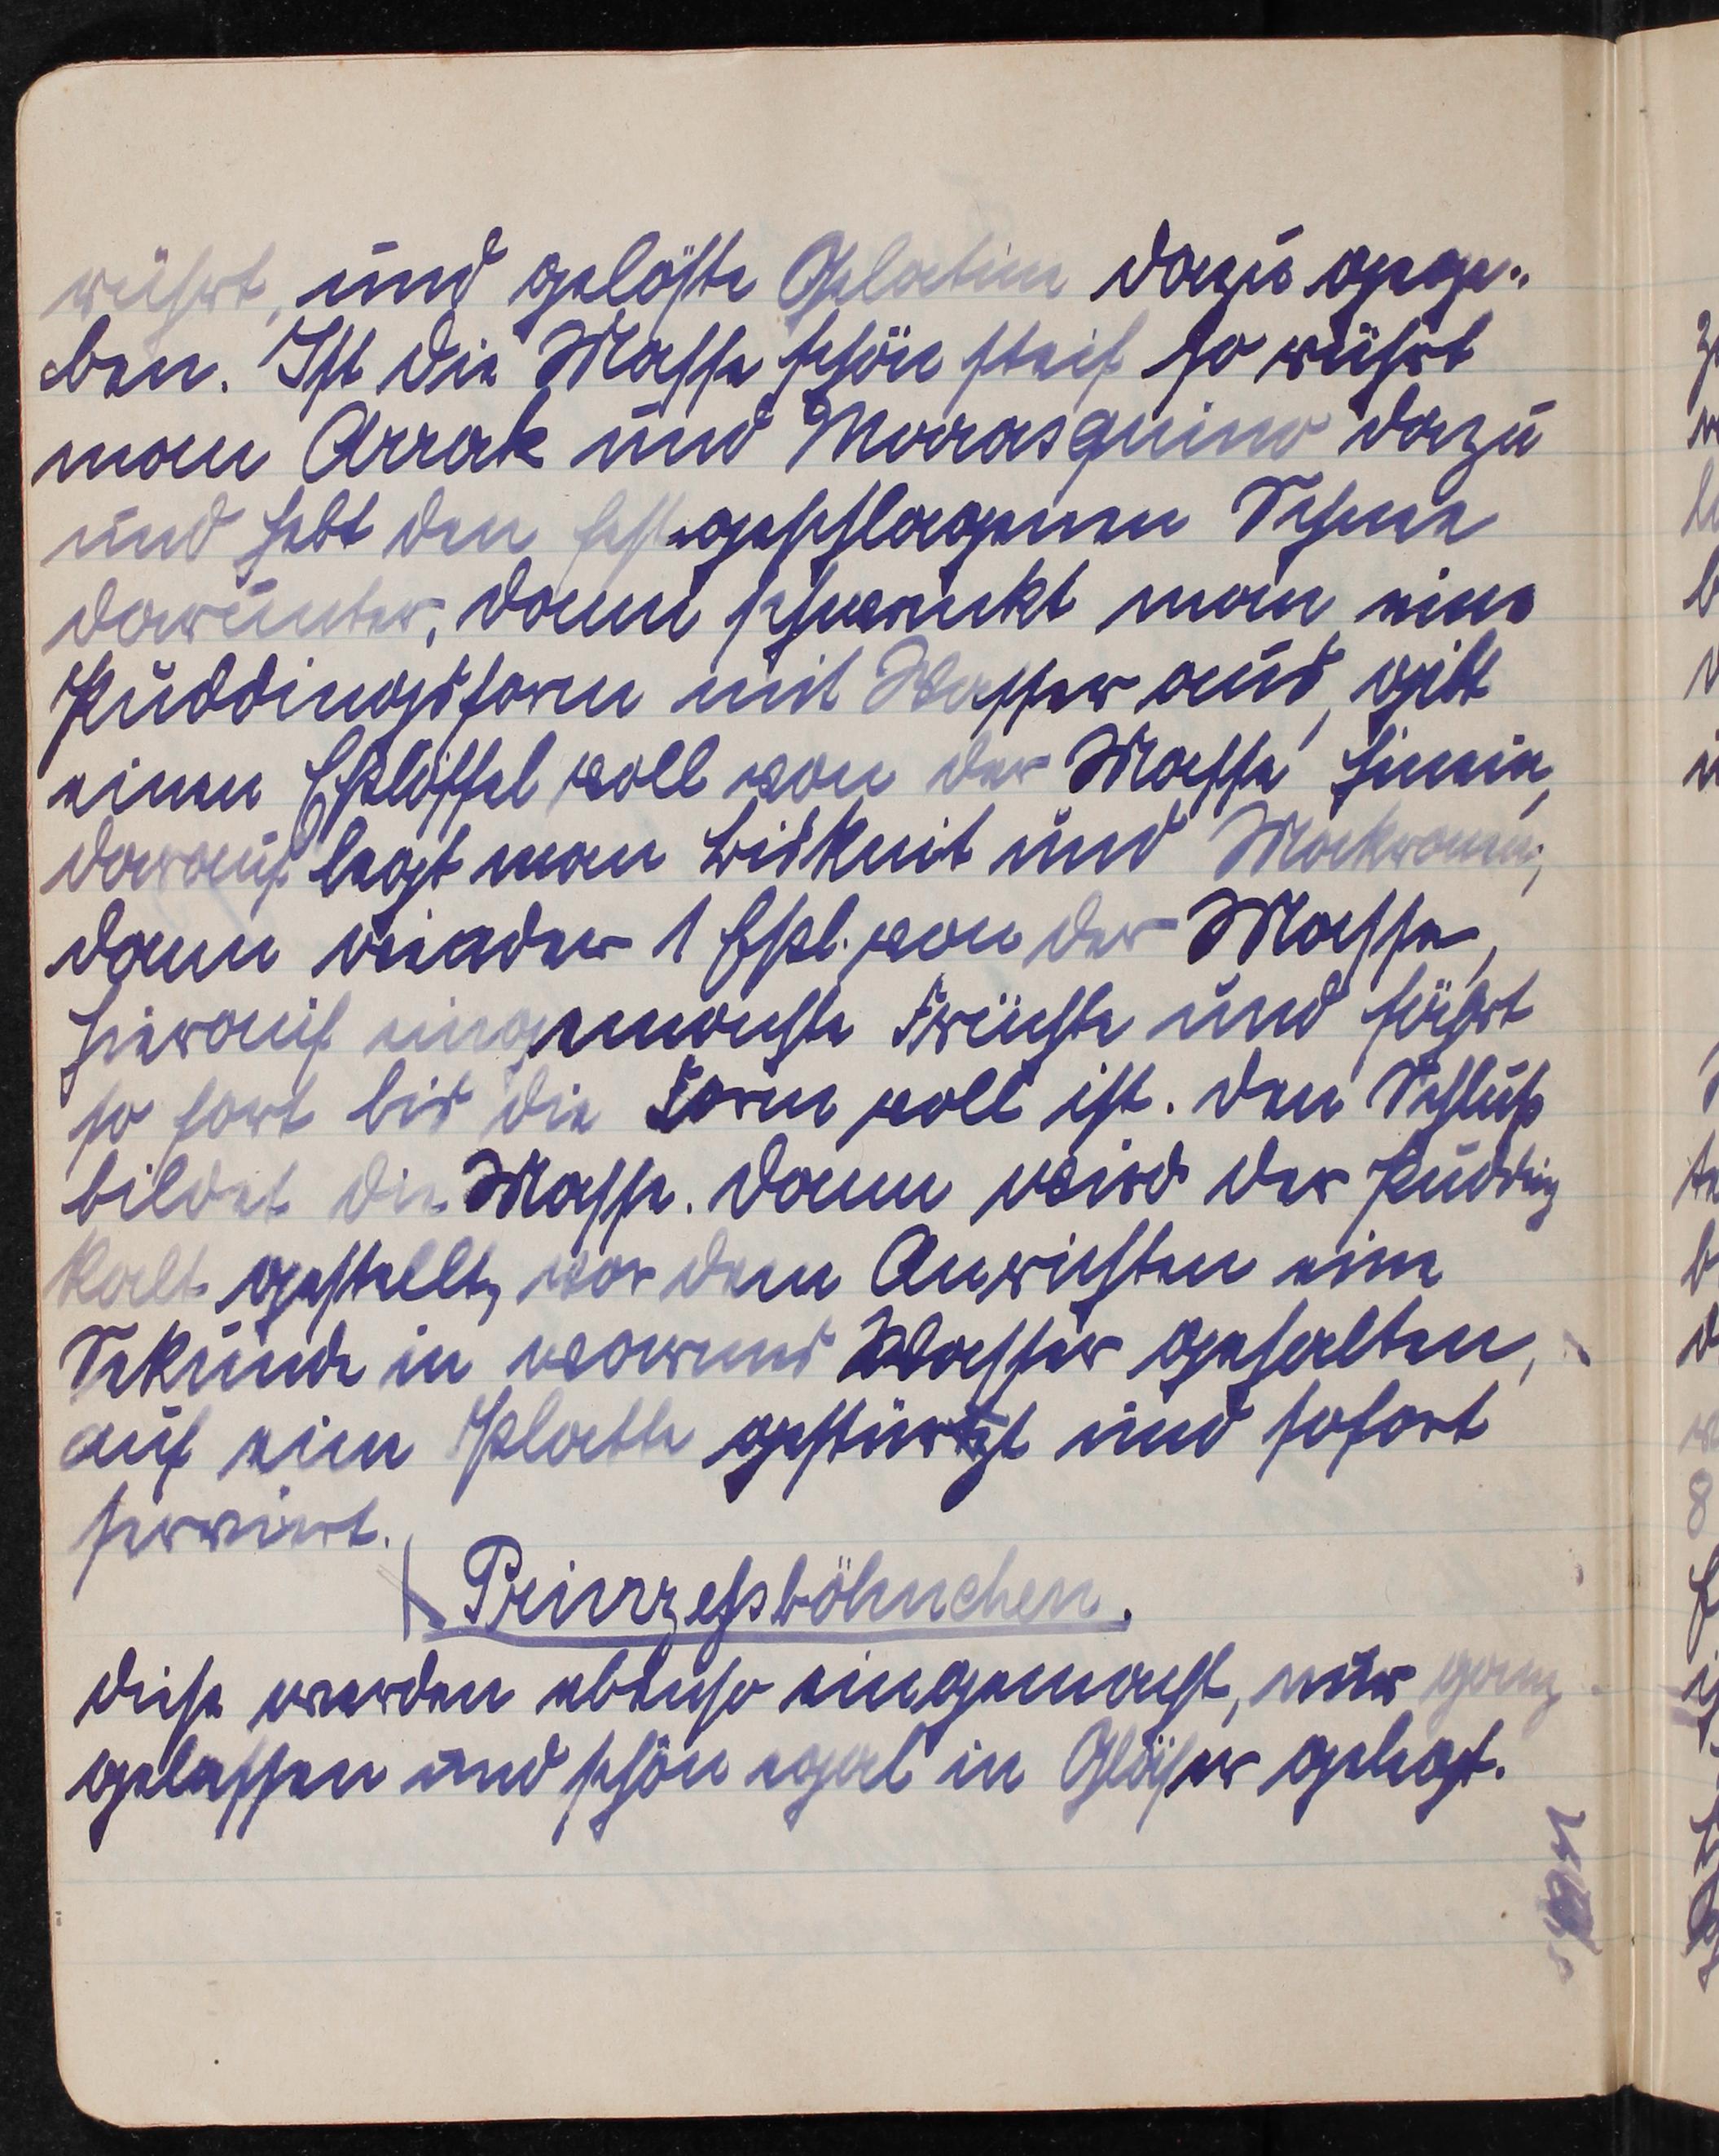 rührt, und gelöste Gelatine dazu gege-
ben. Ist die Masse schön steif so rührt
man Arrak und Marasquino dazu
und hebt den festgeschlagenen Schnee
darunter, dann schwenkt man eine
Puddingsform mit Wasser aus, gibt
einen Eßlöffel voll von der Masse hinein,
darauf legt man Biskuit und Makronen,
dann wieder 1 Eßl. von der Masse,
hierauf eingemachte Früchte und fährt
so fort bis die Form voll ist. Den Schluß
bildet die Masse. Dann wird der Pudding
kalt gestellt, vor dem Anrichten eine
Sekunde in warmes Wasser gehalten,
auf eine Platte gestürtzt und sofort
serviert.
Prinzeßböhnchen.
Diese werden ebenso eingemacht, nur ganz
gelassen und schön egal in Gläser gelegt.